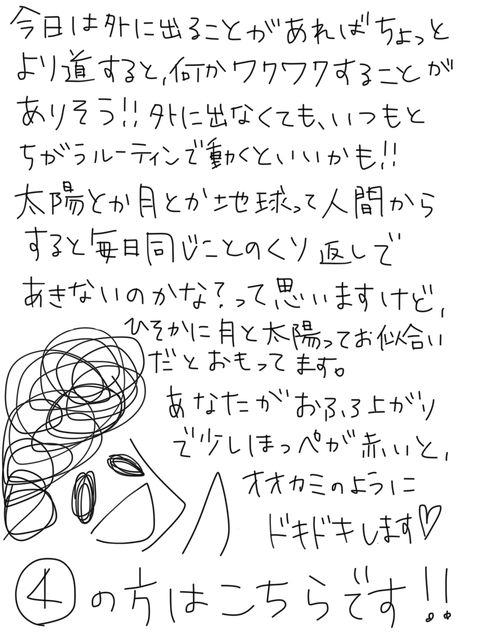 今日は外に出ることがあればちょっと
より道すると、何かワクワクすることが
ありそう!!外に出なくても、いつもと
ちがうルーティンで動くといいかも!!
太陽とか月とか地球って人間から
すると毎日同じことのくり返しで
あきないのかな?って思いますけど、
ひそかに月と太陽ってお似合い
だとおもってます。
あなたがおふろ上がり
で少しほっぺが赤いと、
オオカミのように
ドキドキします♡
④の方はこちらです!!